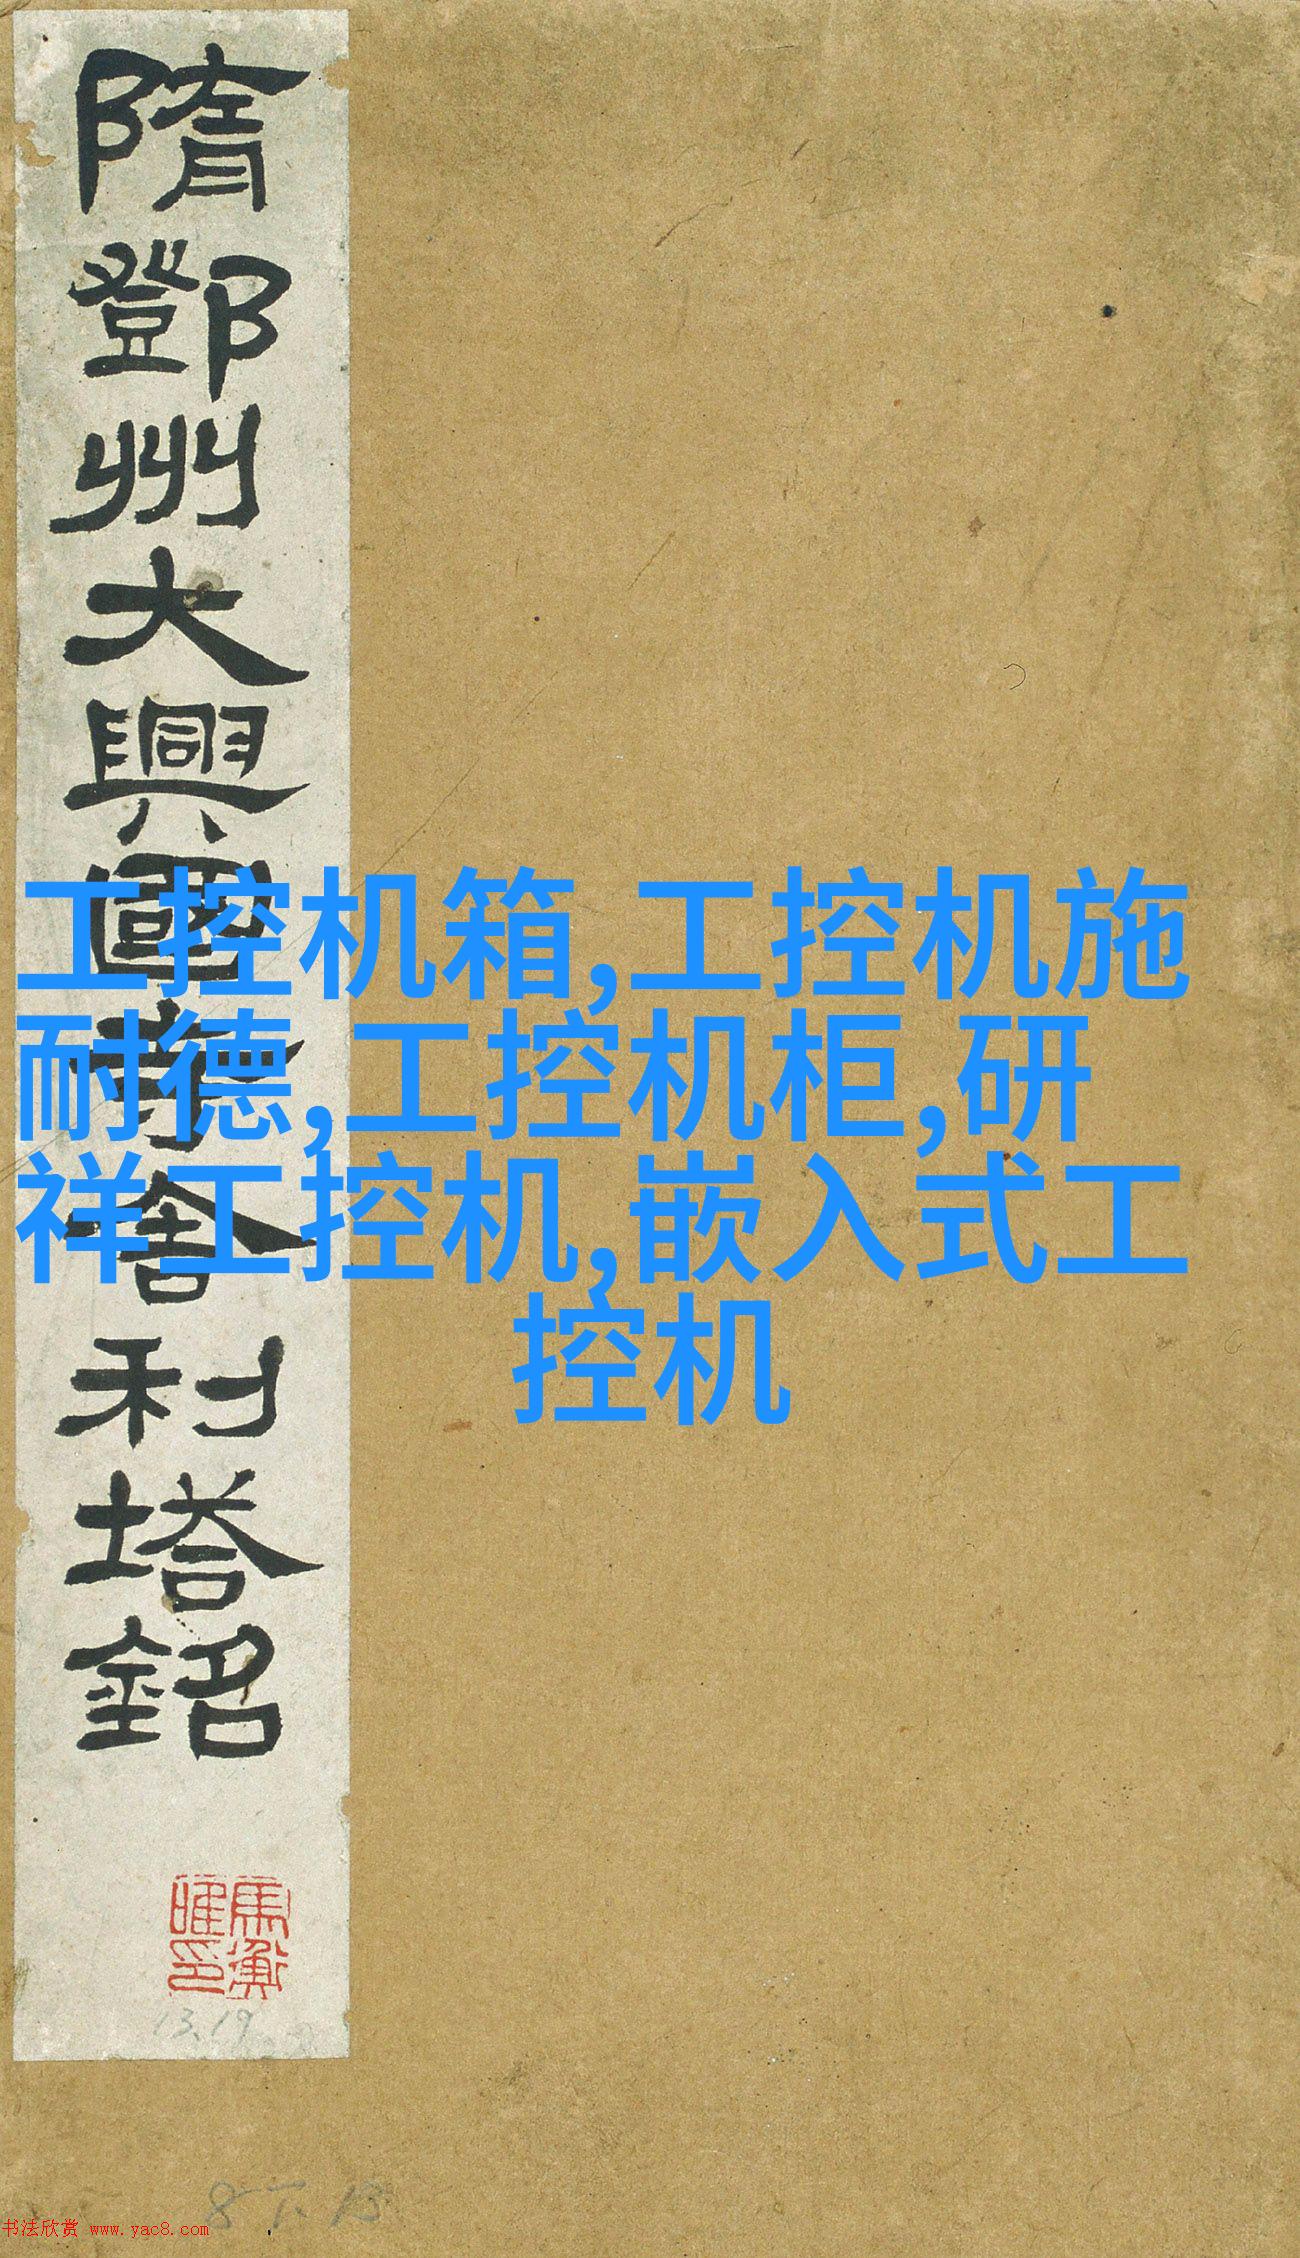 隋鄧州大興國寺舍利塔銘
工控机箱,工控机施
耐德,工控机柜,研
祥工控机,嵌入式工
控机
馬衡
唯印
13.19
8下13
书法欣赏 www.yac8.com